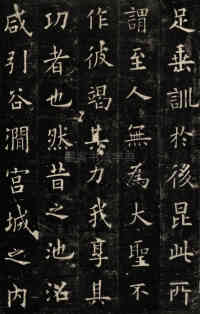 足垂訓於後昆此所
謂至人無為大聖不
作彼竭其力我享其
功者也然昔之池沼
咸引谷澗宮城之內